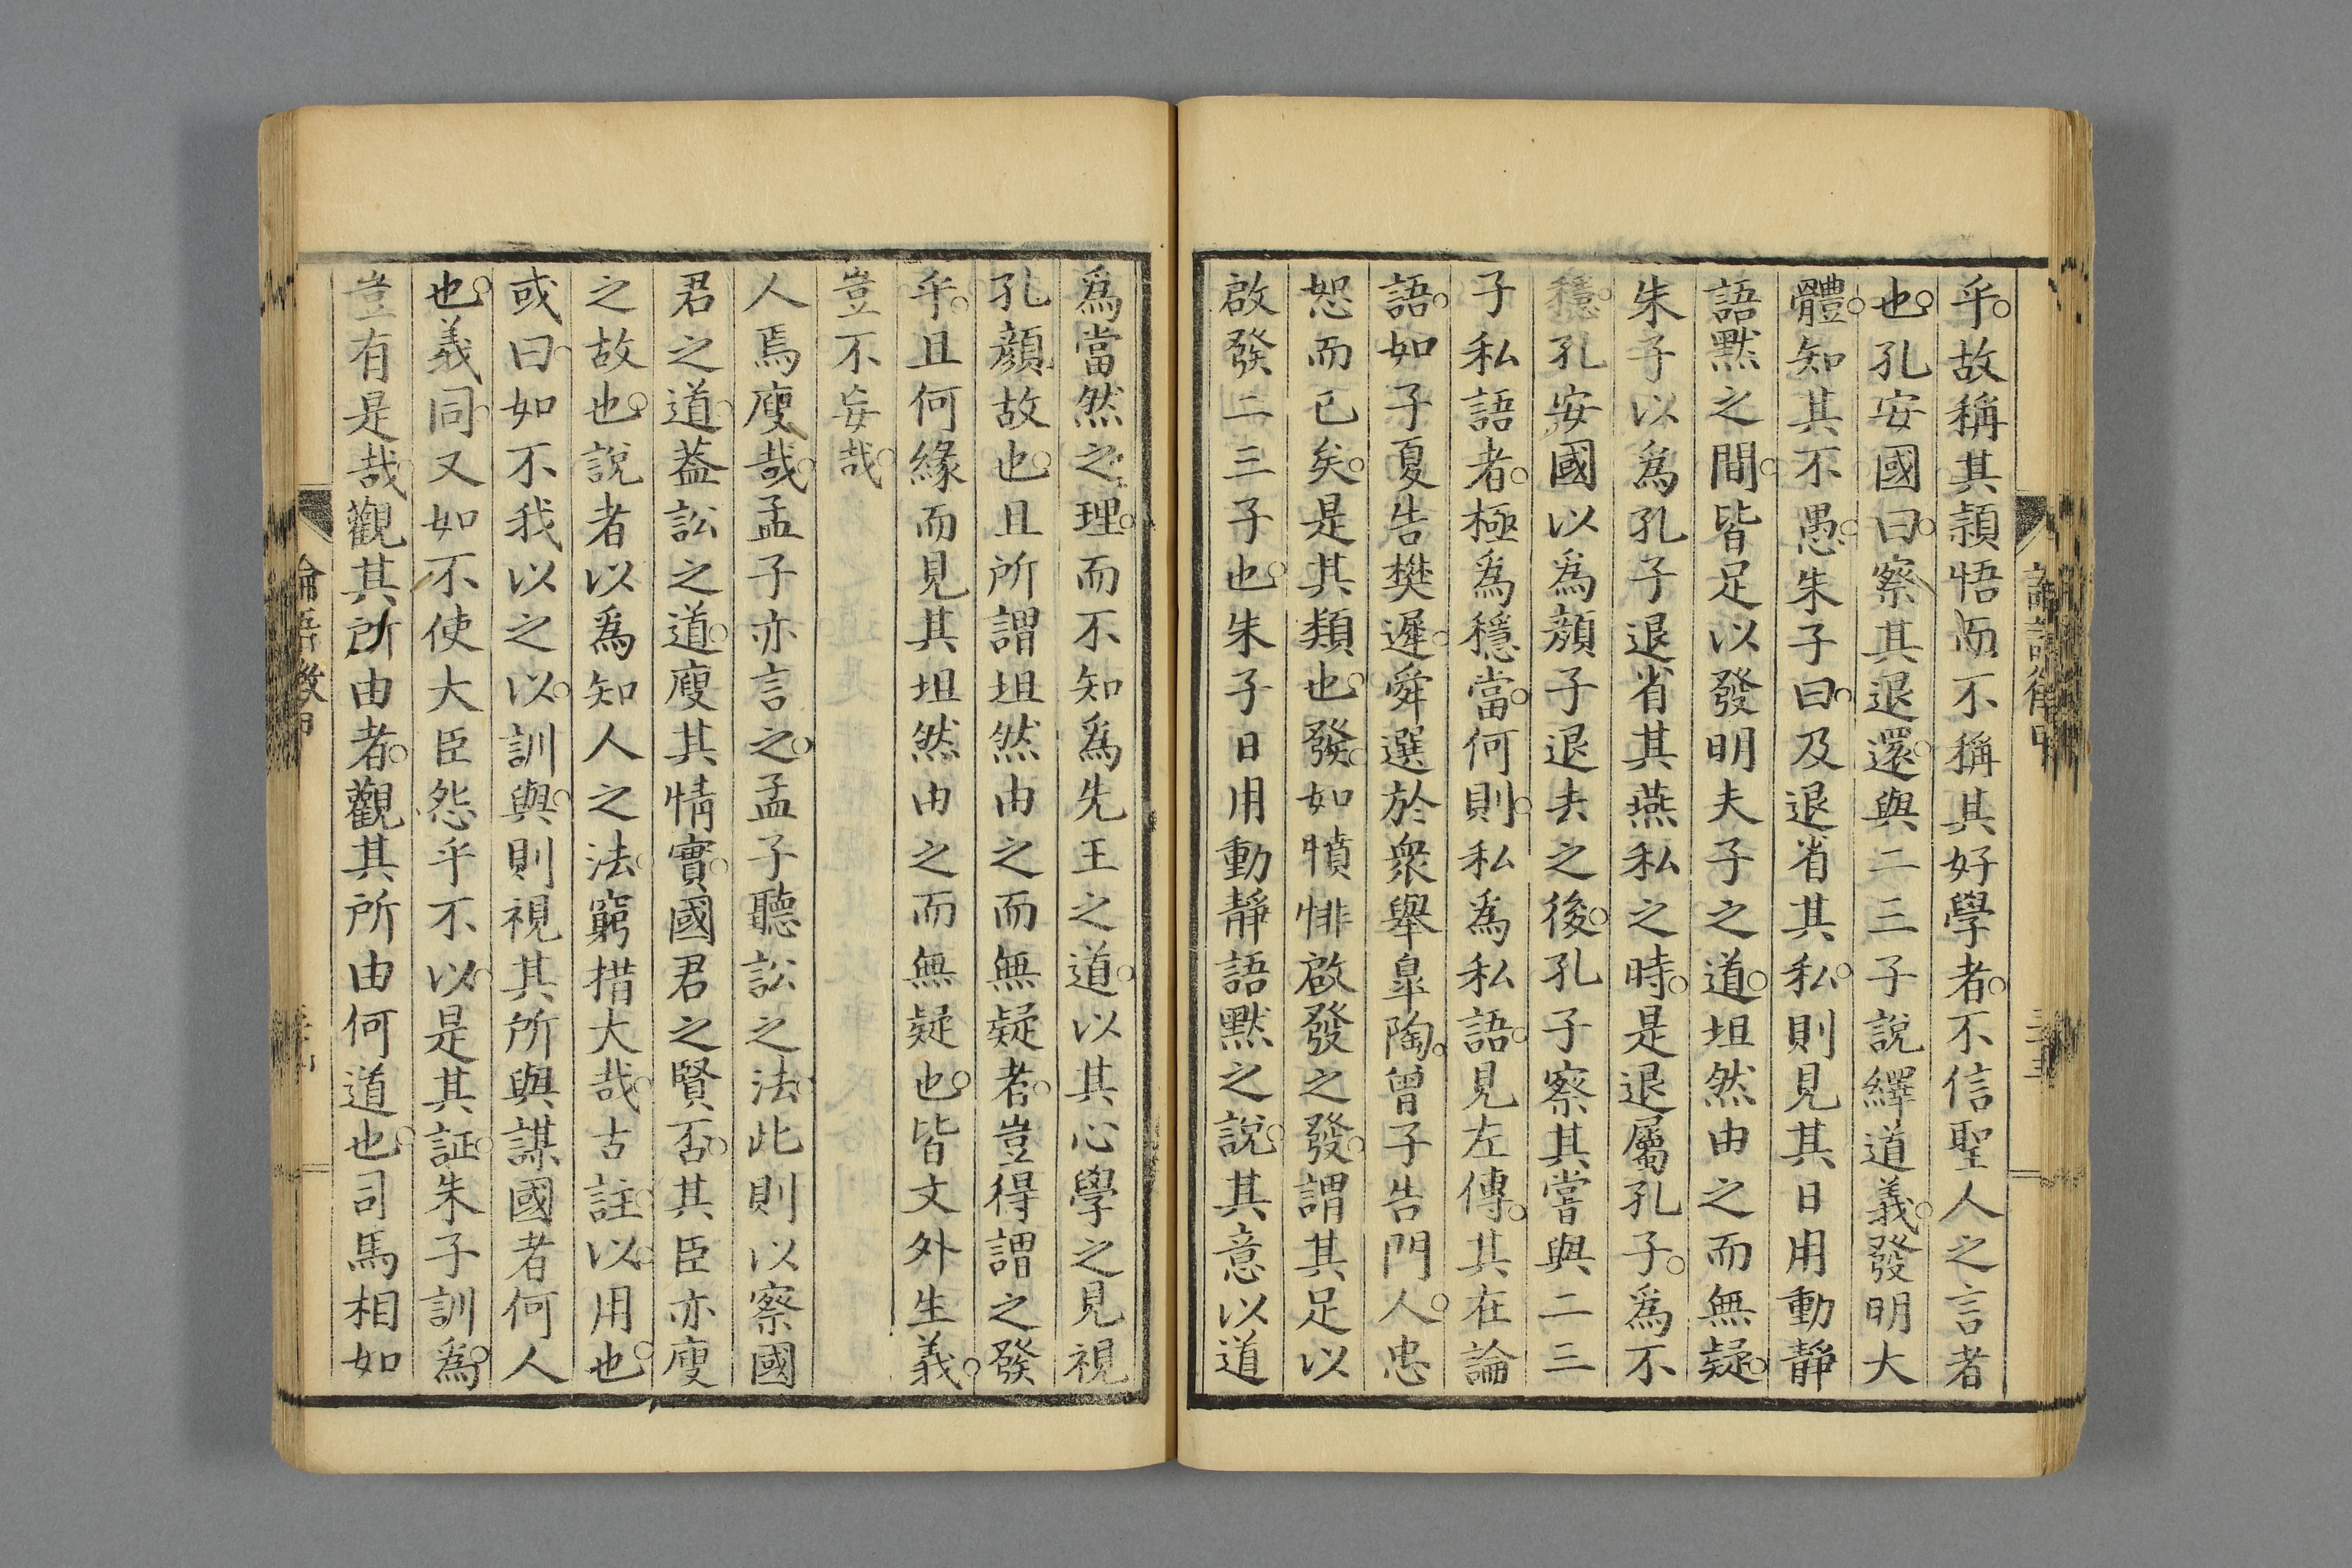 乎故稱其頴悟而不稱其好學者不信聖人之言者
也孔安國曰察其退還與二三子說繹道義發明大
體知其不愚朱子曰及退省其私則見其日用動靜
語默之間皆足以發明夫子之道坦然由之而無疑
朱子以爲孔子退省其燕私之時是退屬孔子爲不
穩孔安國以爲顏子退去之後孔子察其嘗與二三
子私語者極爲穩當何則私爲私語見左傳其在論
語如子夏告樊遲舜選於衆舉皐陶曾子告門人忠
恕而已矣是其類也發如憤悱啟發之發謂其足以
啟發二三子也朱子日用動靜語默之說其意以道
爲當然之理而不知爲先王之道以其心學之見視
孔顏故也且所謂坦然由之而無疑者豈得謂之發
乎且何緣而見其坦然由之而無疑也皆文外生義
豈不妄哉
人焉廋哉孟子亦言之孟子聽訟之法此則以察國
君之道葢訟之道廋其情實國君之賢否其臣亦廋
之故也說者以爲知人之法窮措大哉古註以用也
或曰如不我以之以訓與則視其所與謀國者何人
也義同又如不使大臣怨乎不以是其証朱子訓爲
豈有是哉觀其所由者觀其所由何道也司馬相如
論語徵甲